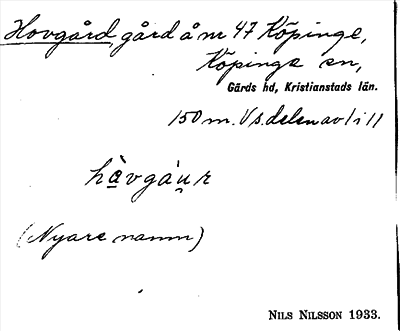 Hovgård, gård å nr 47 Köpinge,
Köpinge sn,
Gärds hd, Kristianstads län.
150 m. V s. delen av 1 i 11
hàvgáu̯r
(Nyare namn)
NILS NILSSON 1933.